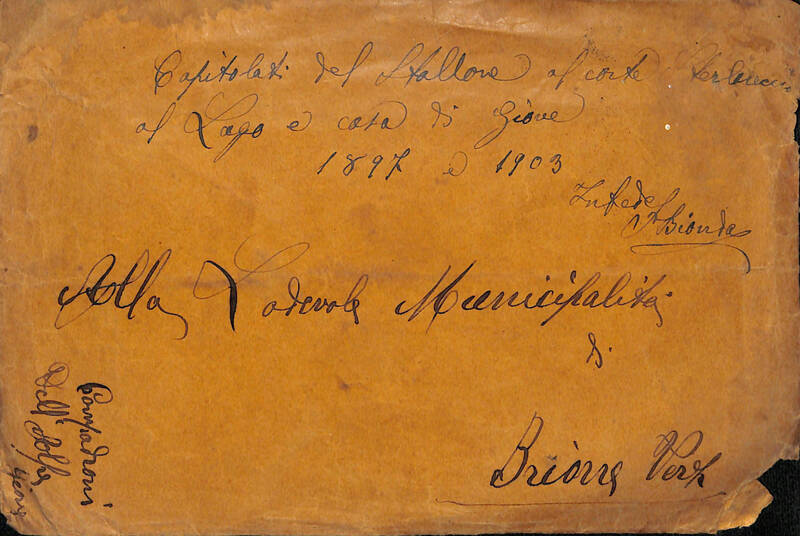 Capitolati del Stallone al corte
al Lago e casa di Giove
1897 e 1903
In fede
F Bionda
Alla Lodevole Municipalità
di
Brione Verz
Compadroni
dell' Alpe